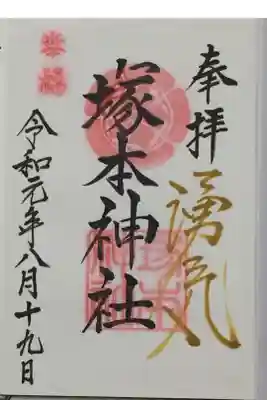 奉拝
湧気
塚本神社
令和元年八月十九日